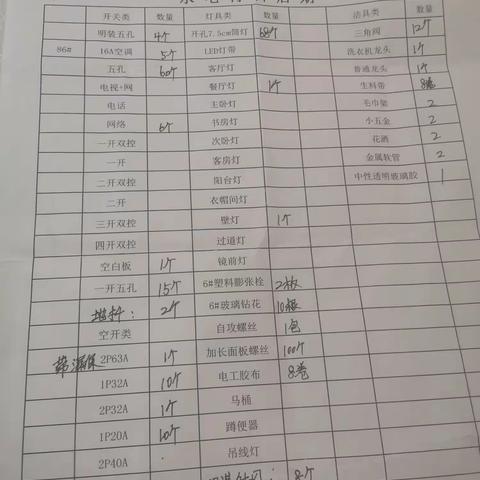 开关类 数量 灯具类 数量 洁具类 数量
明装五孔 4个 开孔7.5cm筒灯 68个 三角阀 12个
86# 16A空调 5个 LED灯带 洗衣机龙头 1个
五孔 60个 客厅灯 普通龙头 1个
电视+网 餐厅灯 1个 生料带 8卷
电话 主卧灯 毛巾架 2
网络 6个 书房灯 小五金 2
一开双控 次卧灯 花洒 2
一开 客房灯 金属软管 2
二开双控 阳台灯 中性透明玻璃胶 1
二开 衣帽间灯
三开双控 壁灯 1个
四开双控 过道灯
空白板 1个 镜前灯
一开五孔 15个 6#塑料膨张栓 2板
2个 6#玻璃钻花 10根
空开类 自攻螺丝 1包
带漏保 2P63A 1个 加长面板螺丝 100个
1P32A 10个 电工胶布 8卷
2P32A 1个 马桶
1P20A 10个 蹲便器
2P40A 吊线灯
8个